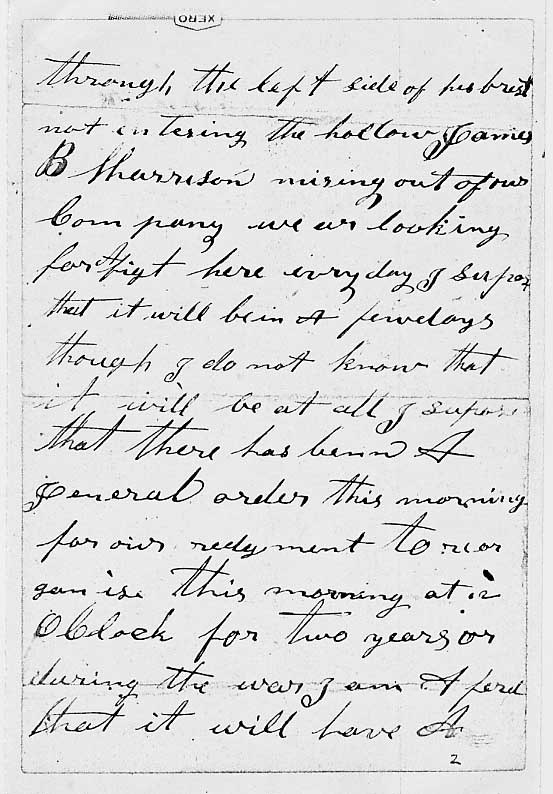 XERO
through the left side of his brest
not intering the hollow James
B Sharrison mising out of our
Com pany we ar looking
for A figt here evryday I supos
that it will be in A fewdays
though I do not know that
it will be at all I supose
that there has benn A
General order this morning
for our redgment to reor
gan ise this morning at 12
OClock for two years or
during the war I am A ferd
that it will have A
2